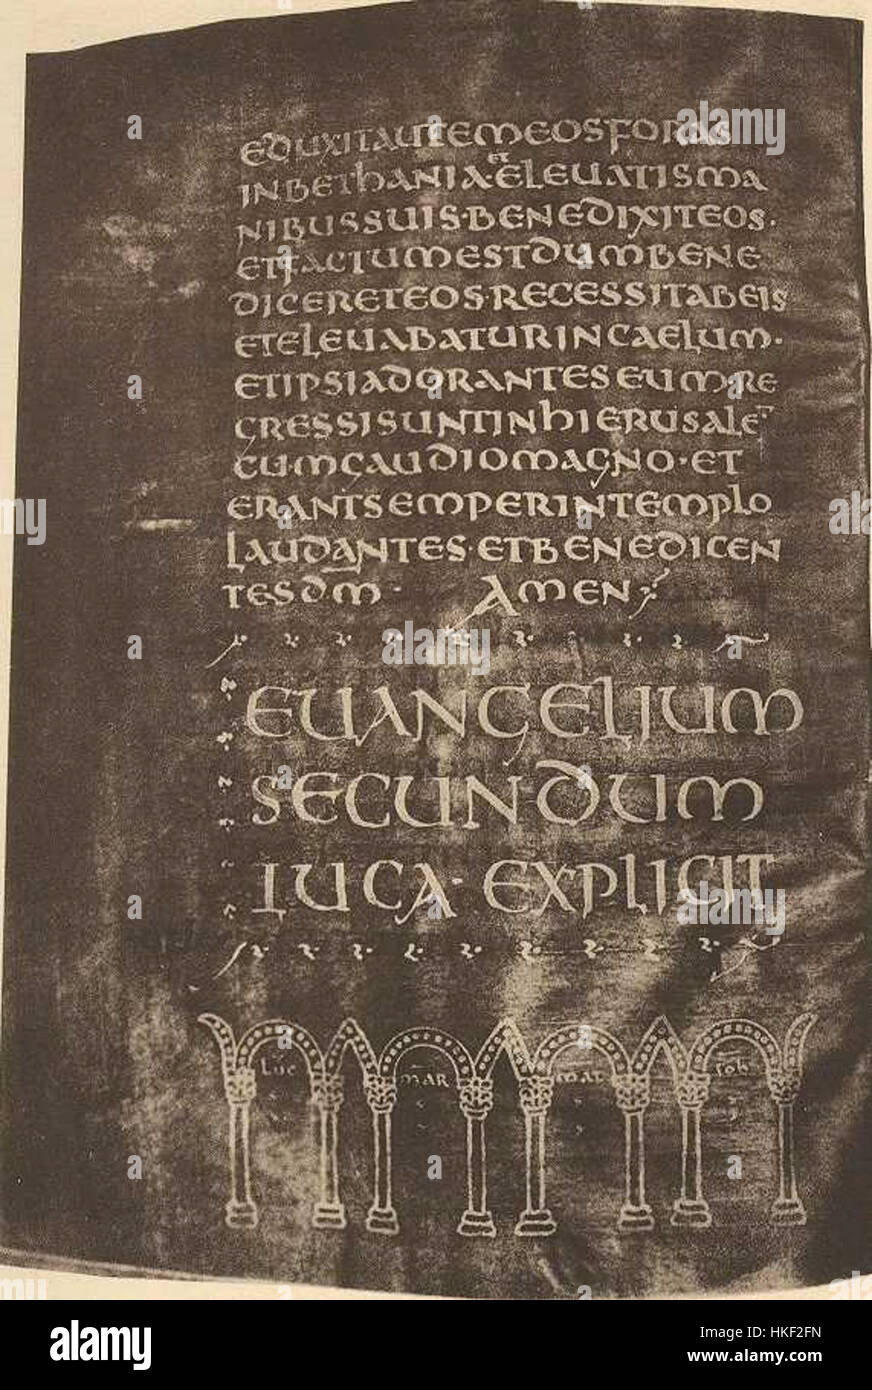 EDUXITAUTEMEOSFORAS
INBEThANIA·ETELEUATISMA
NIBUSSUIS·BENEDIXITEOS·
ETFACTUMESTDUMBENE
DICERETEOS·RECESSITABEIS
ETELEUABATURINCAELUM·
ETIPSIADORANTESEUMRE
GRESSISUNTINhIERUSALEM
CUMGAUDIOMAGNO·ET
ERANTSEMPERINTEMPLO
LAUDANTES·ETBENEDICEN
TESDM· AMEN
EUANGELIUM
SECUNDUM
LUCA· EXPLICIT
LUC MAR MAT IOh
alamy
Image ID: HKF2FN
www.alamy.com